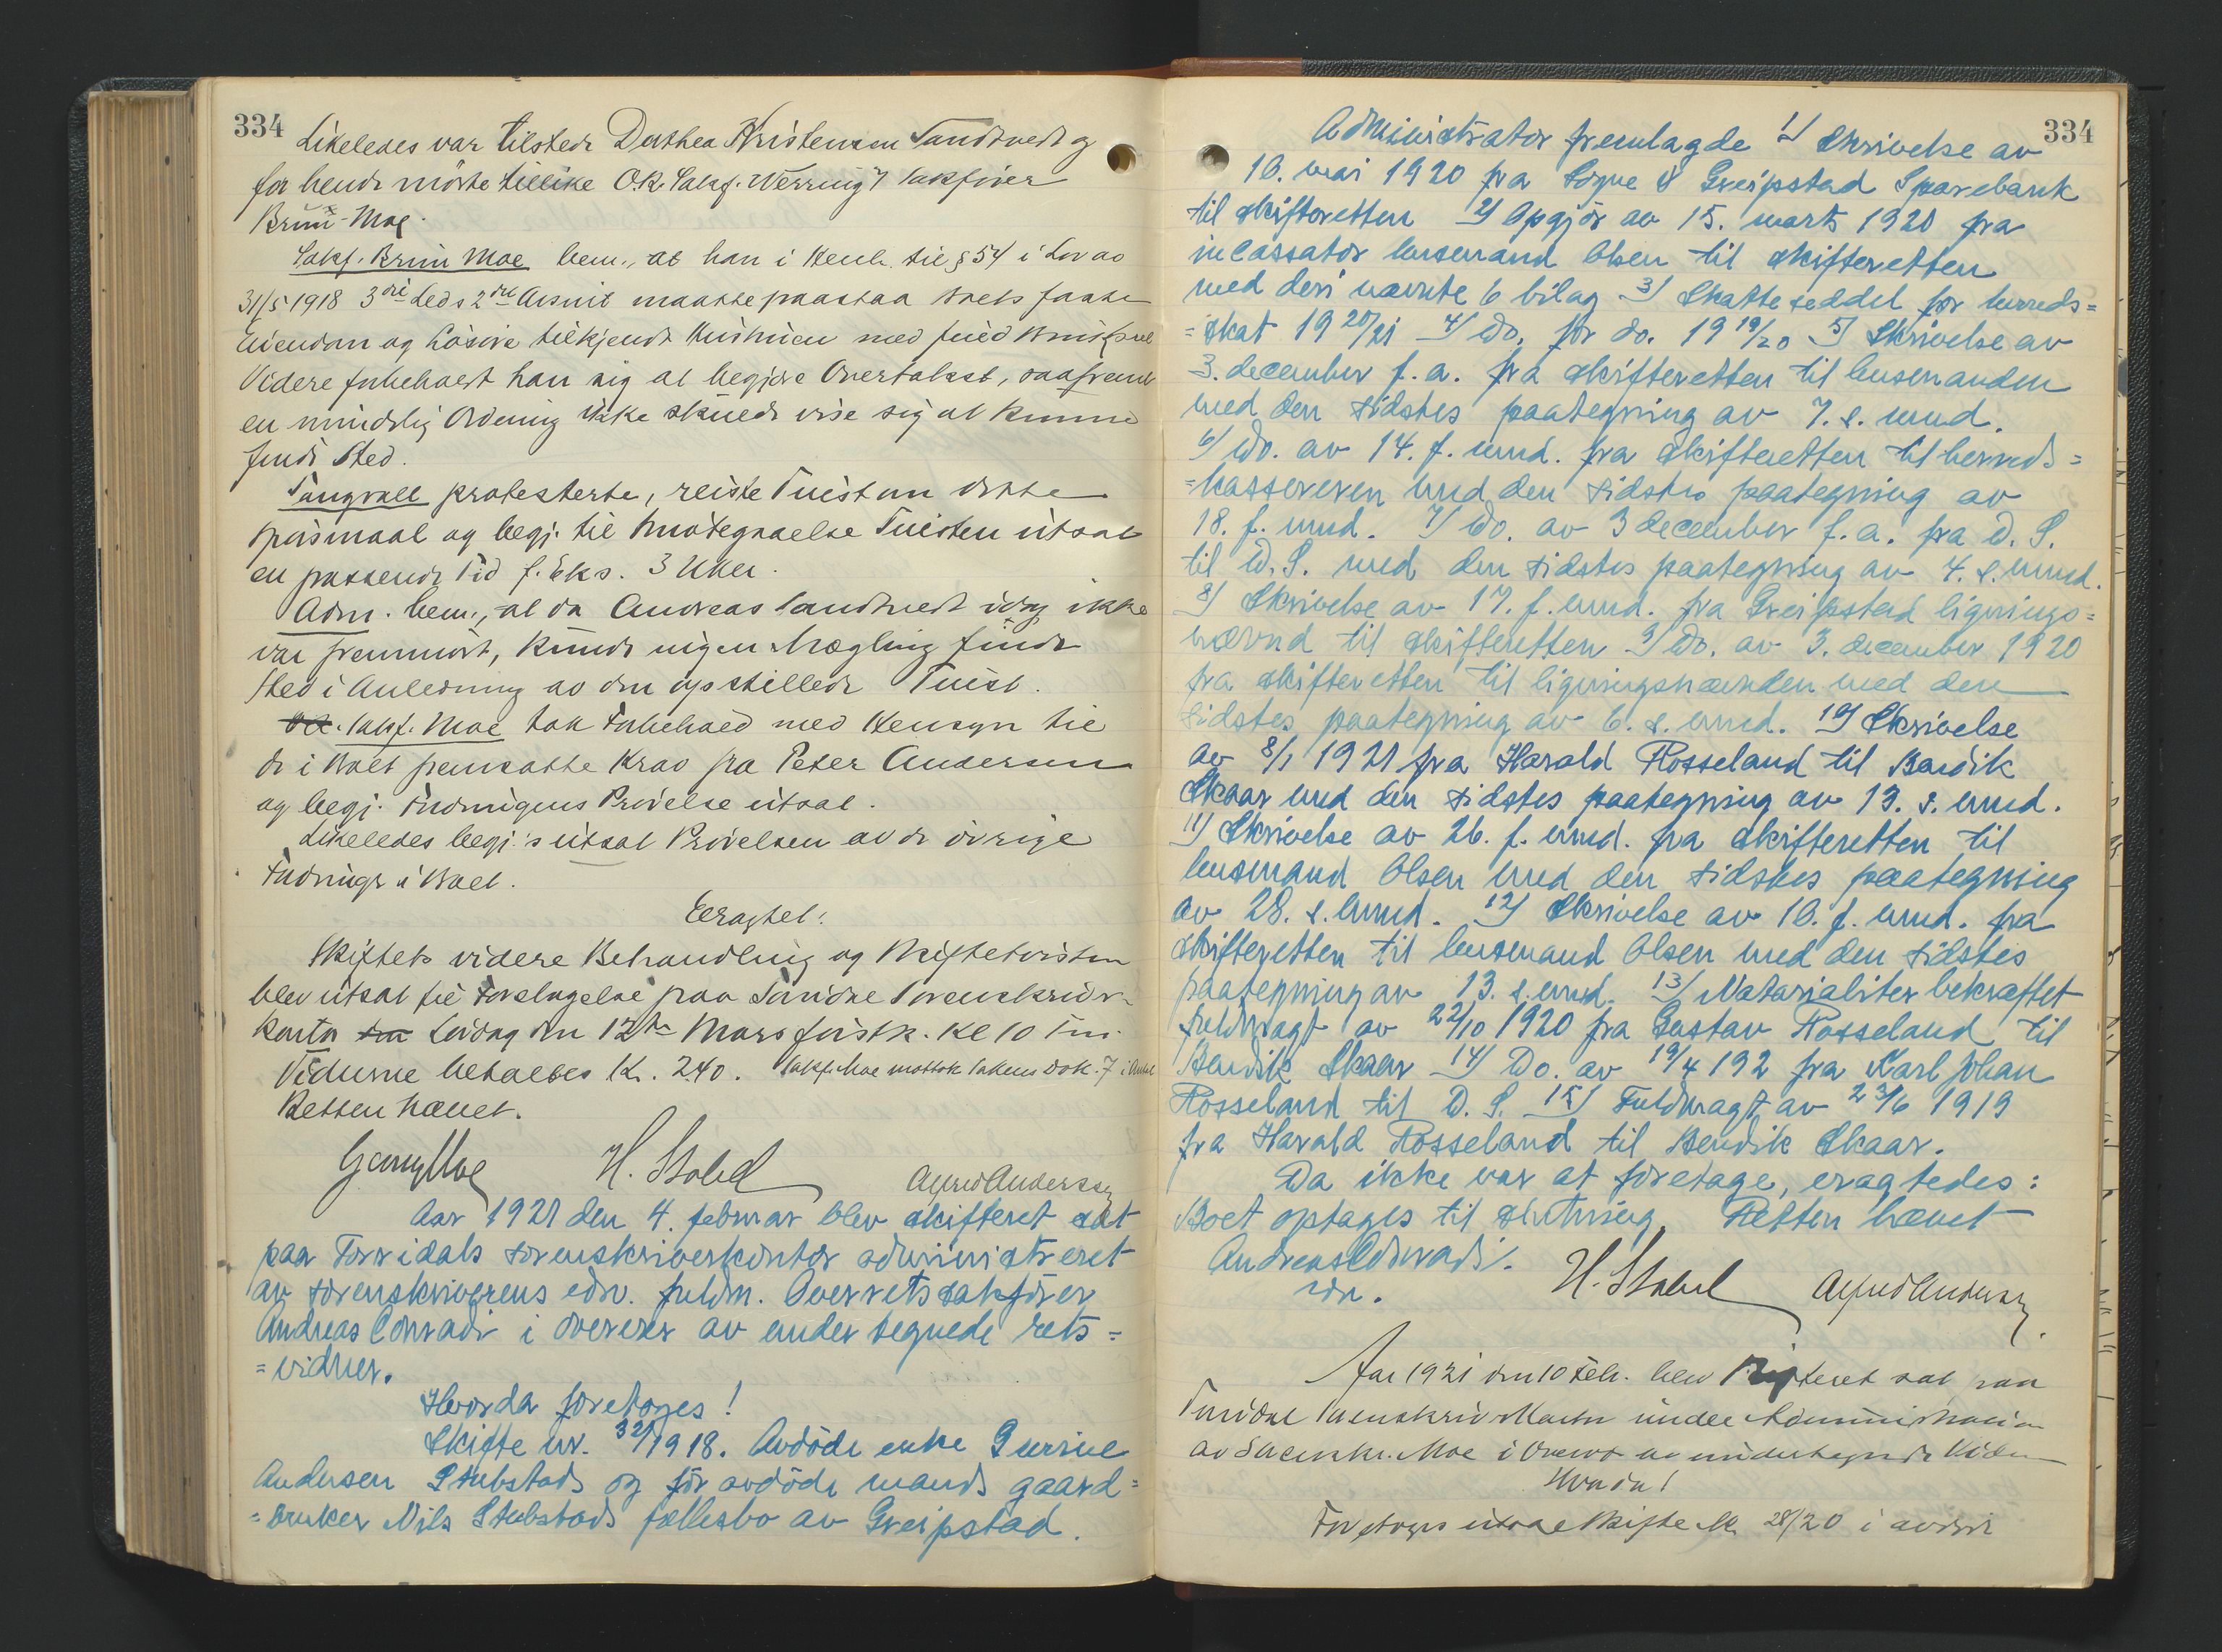 334
Likeledes var tilstede Dorthea Kristensen Sandtvedt og
for hende møtte tillike O.R. Sakf. Werring v/ Sakfører
Bruun-Moe.
Sakf. Bruun Moe bem., at han i Henh. til § 54 i Lov av
31/5 1918 3die Leds 2det Avsnit maatte paastaa Boets faste
Eiendom og Løsøre tilkjendt Hustruen med
Videre forbeholdt han sig at begjære Overtakst, saafremt
en mindelig Ordning ikke skulde vise sig at kunne
finde Sted.
Tangvall protesterte, reiste Tvist om dette
Spørsmaal og begj. til Imøtegaaelse Tvisten utsat
en passende Tid f. Eks. 3 Uker.
Adm. bem., at da Andreas Sandtvedt idag ikke
var fremmøtt, kunde ingen Mægling finde
Sted i Anledning av den opstillede Tvist.
Sakf. Moe tok Forbehold med Hensyn til
de i Boet fremsatte Krav fra Peter Andersen
og begj. Fordringens Prøvelse utsat.
Likeledes begj.'s utsat Prøvelsen av de øvrige
Fordringer i Boet.
Eragtet:
Skiftets videre Behandling og Skiftetvisten
blev utsat til Foretagelse paa Torridal Sorenskriver-
kontor Lørdag den 12te Mars førstk. Kl 10 Fm.
Vidnerne betaltes Kr. 2.40. Sakf. Moe mottok Sakens Dok. 7 i Antal
Retten hævet.
H. Stabel Alfred Andersen
Aar 1921 den 4. februar blev skifteret sat
paa Torridals sorenskriverkontor administreret
av sorenskriverens edsv. fuldm. Overretssakfører
Andreas Conradi i overvær av undertegnede rets=
=vidner.
Hvorda foretoges!
Skifte nr. 32/1918. Avdøde enke Gurine
Andersen Stubstads og før avdøde mands gaard=
=bruker Nils Stubstads fællesbo av Greipstad.
334
Administrator fremlagde 1/ Skrivelse av
10. mai 1920 fra Søgne & Greipstad Sparebank
til skifteretten 2/ Opgjør av 15. marts 1920 fra
incassator lensmand Olsen til skifteretten
med deri nævnte 6 bilag 3/ Skatteseddel for herreds=
=skat 1920/21 4/ Do. for do. 1919/20 5/ Skrivelse av
3. december f. a. fra skifteretten til lensmanden
med den sidstes paategning av 7. s. mnd.
6/ Do. av 14. f. mnd. fra skifteretten til herreds=
=kassereren med den sidstes paategning av
18. f. mnd. 7/ Do. av 3 december f. a. fra D. S.
til D. S. med den sidstes paategning av 4. s. mnd.
8/ Skrivelse av 17. f. mnd. fra Greipstad lignings=
nævnd til skifteretten 9/ Do. av 3. december 1920
fra skifteretten til ligningsnævnden med den
sidstes paategning av 6. s. mnd. 10/ Skrivelse
av 8/1 1921 fra Harald Rosseland til Bendik
Skaar med den sidstes paategning av 13. s. mnd.
11/ Skrivelse av 26. f. mnd. fra skifteretten til
lensmand Olsen med den sidstes paategning
av 28. s. mnd. 12/ Skrivelse av 10. f. mnd. fra
skifteretten til lensmand Olsen med den sidstes
paategning av 13. s. mnd. 13/ Notarialiter bekræftet
fuldmagt av 22/10 1920 fra Gustav Rosseland til
Bendik Skaar 14/ Do. av 19/4 192 fra Karl Johan
Rosseland til D. S. 15/ Fuldmagt av 23/6 1919
fra Harald Rosseland til Bendik Skaar.
Da ikke var at foretage, eragtedes:
Boet optages til slutning. Retten hævet
Andreas Conradi.
H. Stabel Alfred Andersen
Aar 1921 den 10 Feb. blev Skifteret sat paa
Torridal Sorenskriverkontor under Administration
av Sorenskr. Moe i Overvær av undertegnede Vidner
Hvorda!
Foretoges utsat Skifte No 28/20 i avdøde